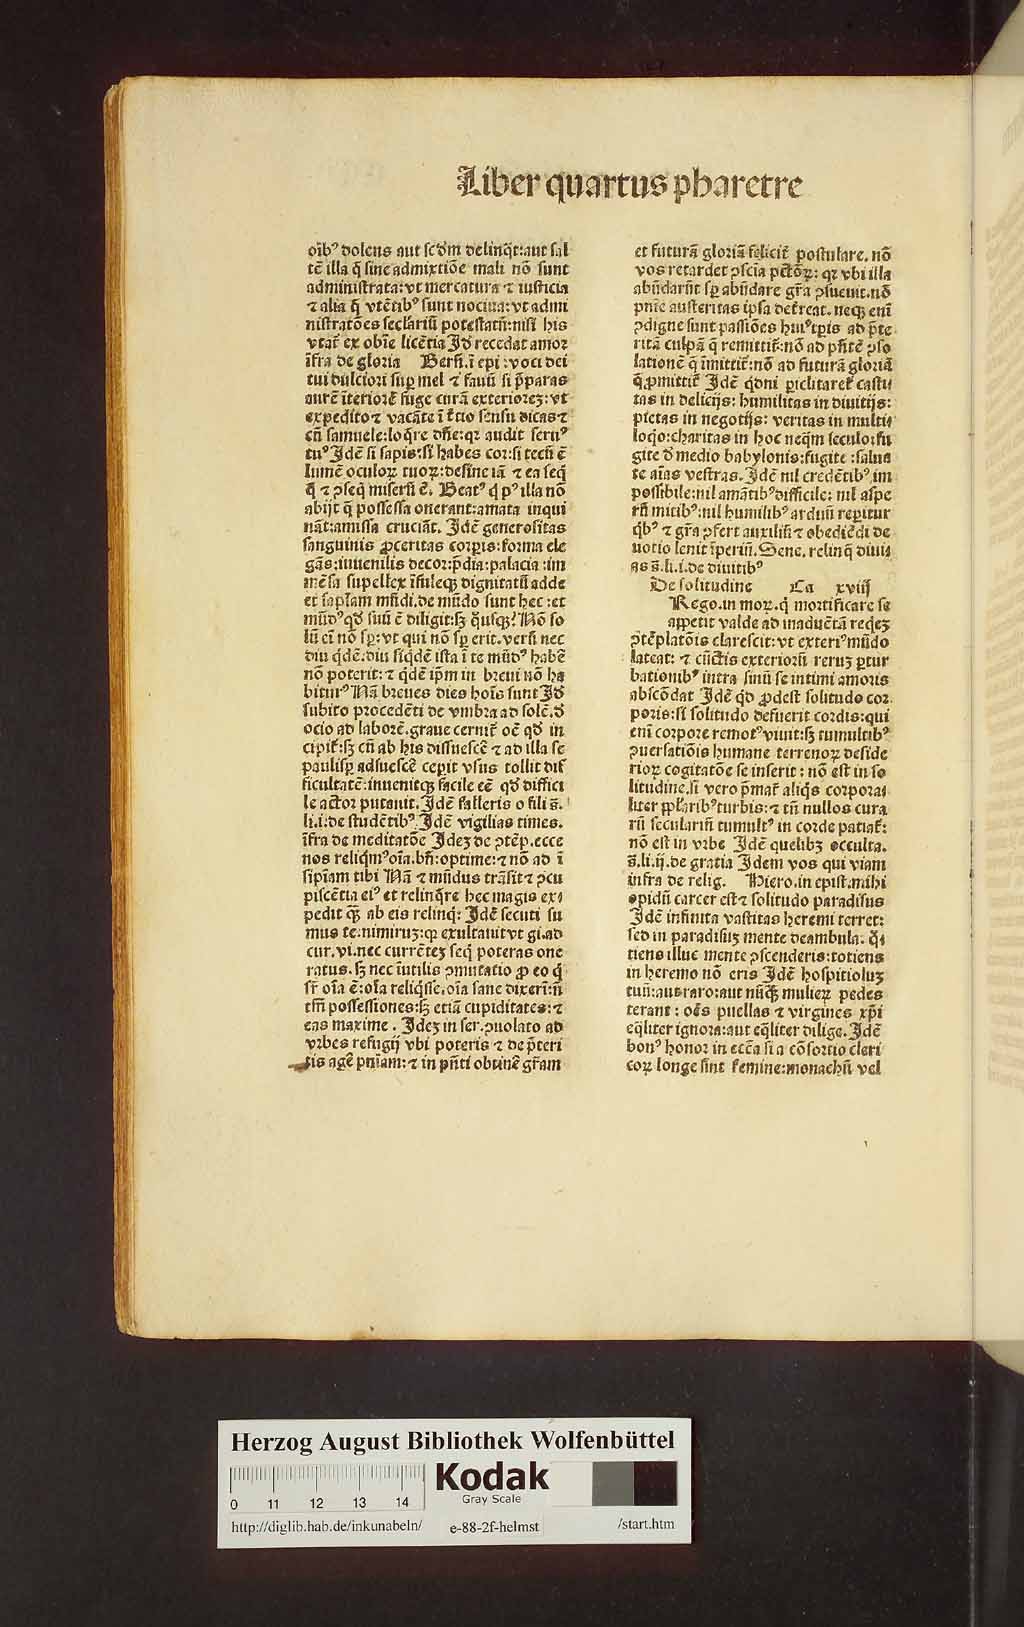 Liber quartus pharetre
oĩbꝰ dolens aut scd̕m delinq̃t: aut sal
tẽ illa q̃ sine admixtiõe mali nõ sunt
administrata: vt mercatura ⁊ iusticia
⁊ alia q̃ vtẽtibꝰ sunt nociua: vt admi
nistratões sec̃lariũ potestatũ: nisi his
vtat᷑ ex obĩe licẽtia Id̕ recedat amor
ĩfra de gloria Berñ. ĩ epi: voci dei
tui dulciori suꝑ mel ⁊ fauũ si p̃paras
aurẽ ĩteriorẽ fuge curã exteriorez: vt
expedito ⁊ vacãte ĩ t̃tio sensu dicas ⁊
cũ samuele: loq̃re dñe: qꝛ audit seruꝰ
tuꝰ Idẽ si sapis: si habes cor: si tecũ ẽ
lumẽ oculoꝝ tuoꝝ: desine iã ⁊ ea seq̃
q̃ ⁊ ꝯseq̃ miserũ ẽ. Beatꝰ q̃ pꝰ illa nõ
abijt q̃ possessa onerant: amata inqui
nãt: amissa cruciãt. Idẽ generositas
sanguinis ꝓceritas corꝑis: forma ele
gãs: iuuenilis decor: p̃dia: palacia: im
mẽsa supellex ĩfuleqꝫ dignitatũ adde
et sapĩam mũdi. de mũdo sunt hec: et
mũdꝰ qd̕ suũ ẽ diligit: sꝫ q̃usqꝫ? Nõ so
lũ ei nõ sꝑ: vt qui nõ sꝑ erit. verũ nec
diu q̃dẽ. diu siq̃dẽ ista ĩ te mũdꝰ habẽ
nõ poterit: ⁊ q̃dẽ ip̃m in breui nõ ha
biturꝰ Nã breues dies hoĩs sunt Id̕
subito procedẽti de vmbra ad solẽ. d̕
ocio ad laborẽ. graue cernit᷑ oẽ qd̕ in
cipit᷑: sꝫ cũ ab his dissuescẽ ⁊ ad illa se
paulisꝑ adsuescẽ ceperit vsus tollit dif
ficultatẽ: inuenitqꝫ facile eẽ qd̕ diffici
le actor putauit. Idẽ falleris o fili s̃.
li. i: de studẽtibꝰ. Idẽ vigilias times.
ĩfra de meditatõe Idez de ꝯtẽp. ecce
nos reliqm̃ꝰ oĩa. bñ: optime: ⁊ nõ ad ĩ
sipĩam tibi Nã ⁊ mũdus trãsit ⁊ ꝯcu
piscẽtia eiꝰ et relinq̃re hec magis ex
pedit qꝫ̃ ab eis relinq̃: Idẽ secuti su
mus te. nimiruz: qꝛ exultauit vt gi. ad
cur. vi. nec currẽtez seq̃ poteras one
ratus. sꝫ nec ĩutilis ꝯmutatio ꝓ eo q̃
sr̃ oĩa ẽ: oĩa reliq̃sse. oĩa sane dixerĩ: ñ
tm̃ possessiones: sꝫ etiã cupiditates: ⁊
eas maxime. Idez in ser. ꝯuolato ad
vrbes refugij vbi poteris ⁊ de p̃teri
tis agẽ pñiam: ⁊ in pñti obtinẽ gr̃am
et futurã gloriã felicit᷑ postulare. nõ
vos retardet ꝯscia pctõꝝ: qꝛ vbi illa
abũdarũt sꝑ abũdare gr̃a ꝯsueuit. nõ
pñie austeritas ipsa det᷑reat. neqꝫ eni
ꝯdigne sunt passiões huiꝰ tp̃is ad p̃te
ritã culpã q̃ remittit᷑: nõ ad p̃ñtẽ ꝯso
lationẽ q̃ ĩmittit᷑: nõ ad futurã gloriã
q̃ ꝓmittit᷑ Idẽ q̃dni ꝑiclitaret᷑ casti
tas in delicijs: humilitas in diuitijs:
pietas in negotijs: veritas in multi
loq̃o: charitas in hoc neq̃m seculo: fu
gite d̕ medio babylonis: fugite: salua
te aĩas vestras. Idẽ nil credẽtibꝰ im
possibile: nil amãtibꝰ difficile: nil aspe
rũ mitibꝰ: nil humilibꝰ arduũ reperitur
q̃bꝰ ⁊ gr̃a ꝯfert auxiliũ ⁊ obediẽdi de
uotio lenit ĩperiũ. Sene. relinq̃ diui
as s̃. li. i. de diuitibꝰ
De solitudine Ca xviij
Rego. in moꝝ. q̃ mortificare se
appetit valde ad inuẽtã reqez
ꝯtẽplatõis clarescit: vt exteriꝰ mũdo
lateat: ⁊ cũctis exterioꝝ reruz ꝑtur
bationibꝰ intra sinũ se intimi amoris
abscõdat Idẽ qd̕ ꝓdest solitudo cor
poris: si solitudo defuerit cordis: qui
eni corpore remotꝰ viuit: sꝫ tumultibꝰ
ꝯuersatiõis humane terrenoꝝ deside
rioꝝ cogitatõe se inserit: nõ est in so
litudine. si vero p̃mat᷑ aliq̃s corpora
liter pplaribꝰ turbis: ⁊ tñ nullos cura
rũ seculariũ tumultꝰ in corde patiat᷑:
nõ est in vrbe Idẽ quelibꝫ occulta.
s̃. li. ij. de gratia Idem vos qui viam
infra de relig. Hiero. in epist. mihi
opidũ carcer est ⁊ solitudo paradisus
Idẽ infinita vastitas heremi terret:
sed in paradisuz mente deambula. q̃
tiens illuc mente ꝯscenderis: totiens
in heremo nõ eris Idẽ hospitioluz
tuũ: aut raro: aut nũqꝫ̃ mulieꝝ pedes
terant: oẽs puellas ⁊ virgines xp̃i
eq̃liter ignora: aut eq̃liter dilige. Idẽ
bonꝰ honor in ecc̃a si a cõsortio cleri
coꝝ longe sint femine: monachũ vel
Herzog August Bibliothek Wolfenbüttel
Kodak
Gray Scale
0 11 12 13 14
http://diglib.hab.de/inkunabeln/ e-88-2f-helmst /start.htm